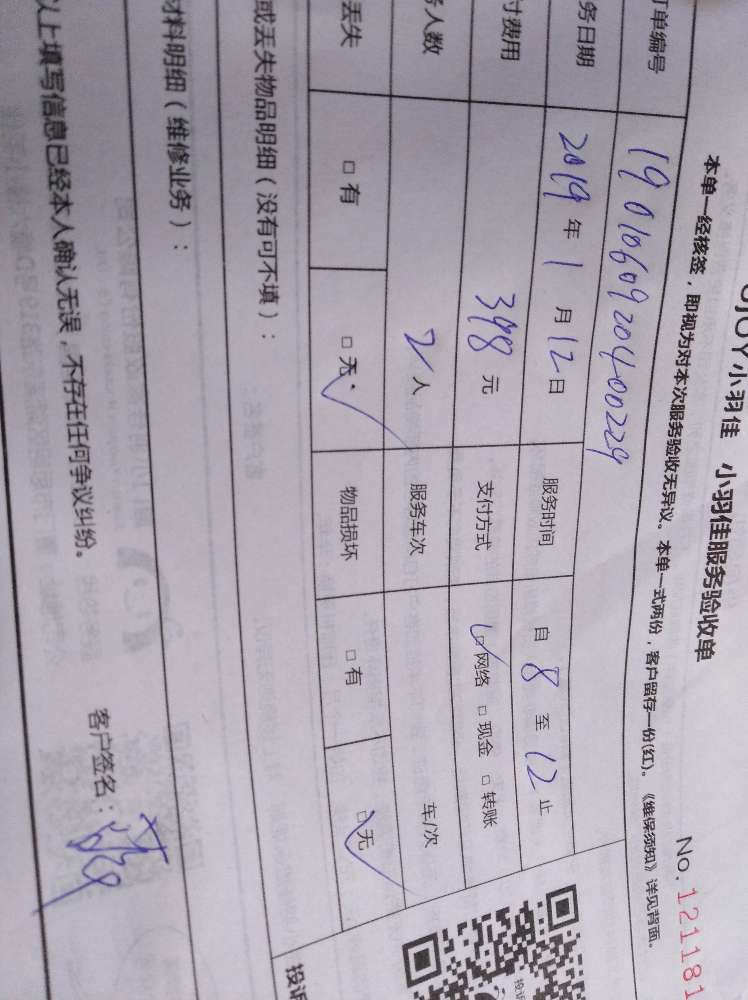 OJOY小羽佳 小羽佳服务验收单
No.121181
本单一经核签，即视为对本次服务验收无异议。本单一式两份，客户留存一份(红)。《维保须知》详见背面。
订单编号 1901060920400229
务日期 2019年1月12日 服务时间 自8至12止
付费用 398元 支付方式 ☑网络 □现金 □转账
务人数 2人 服务车次 车/次
丢失 □有 ☑无 物品损坏 □有 ☑无
或丢失物品明细（没有可不填）：
投诉
材料明细（维修业务）：
以上填写信息已经本人确认无误，不存在任何争议纠纷。 客户签名：